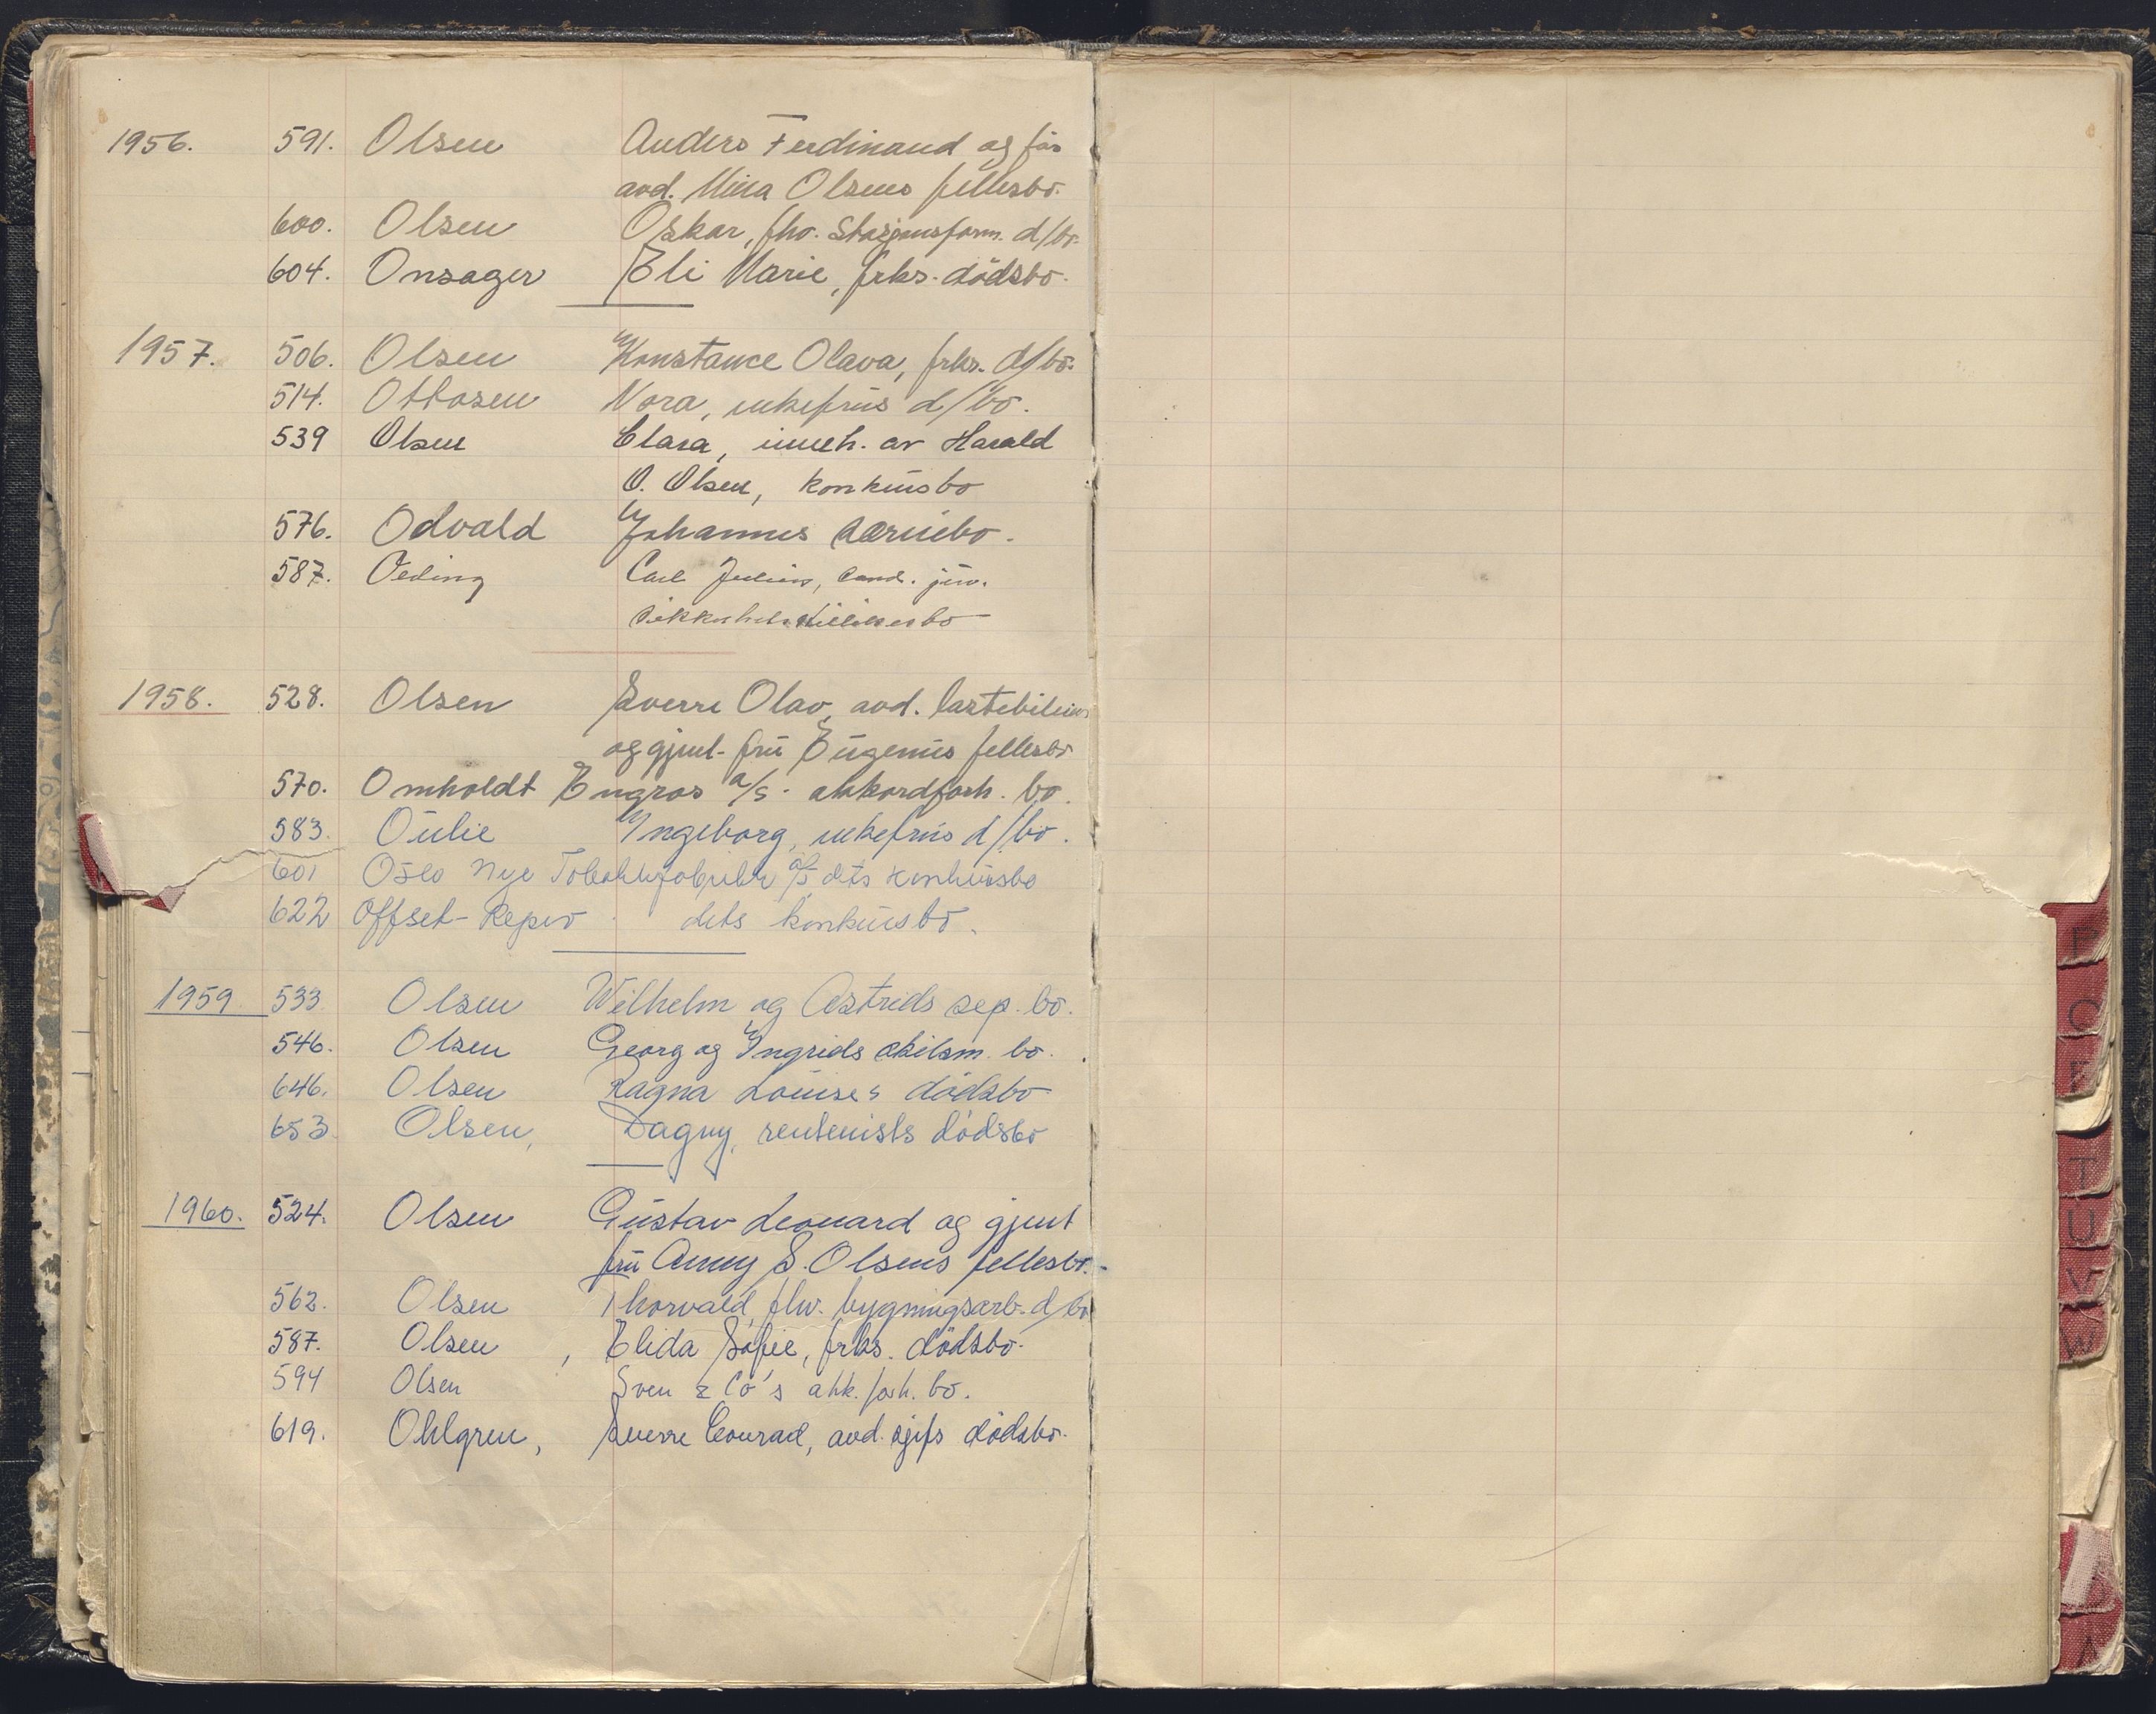 1956. 591. Olsen Anders Ferdinand og frs
avd. Mina Olsens fellesbo.
600. Olsen Oskar, fhv. Stasjonsform. d/bo.
604. Onsager Eli Marie, frks. dödsbo.
1957. 506. Olsen Konstance Olava, frks. d/bo.
514. Ottosen Nora, enkefrus d/bo.
539 Olsen Clara, inneh. av Harald
O. Olsen, konkursbo
576. Odvald Johannes særiebo.
587. Oeding Carl Julius, cand. jur.
1958. 528. Olsen Sverre Olav, avd. lastebileier
og gjenl. fru Eugenies fellesbo
570. Omholdt Engros a/s. akkordforh. bo.
583. Oulie Ingeborg, enkefrus d/bo.
601 Oslo Nye Tobakkfabrikk a/s dets konkursbo
622 Offset-Repro dets konkursbo.
1959. 533 Olsen Wilhelm og Astrids sep. bo.
546. Olsen Georg og Ingrids skilsm. bo.
646. Olsen Ragna Louises dödsbo
653 Olsen, Dagny, rentenists dödsbo
1960. 524. Olsen Gustav Leonard og gjenl
fru Anny S. Olsens fellesbo.
562. Olsen Thorvald, fhv. bygningsarb. d/bo
587. Olsen, Elida Sofie, frks. dödsbo.
594 Olsen Sven & Co's akk. forh. bo.
619. Ohlgren, Sverre Conrad, avd. sjåfs dödsbo.
P
T
U
V
W